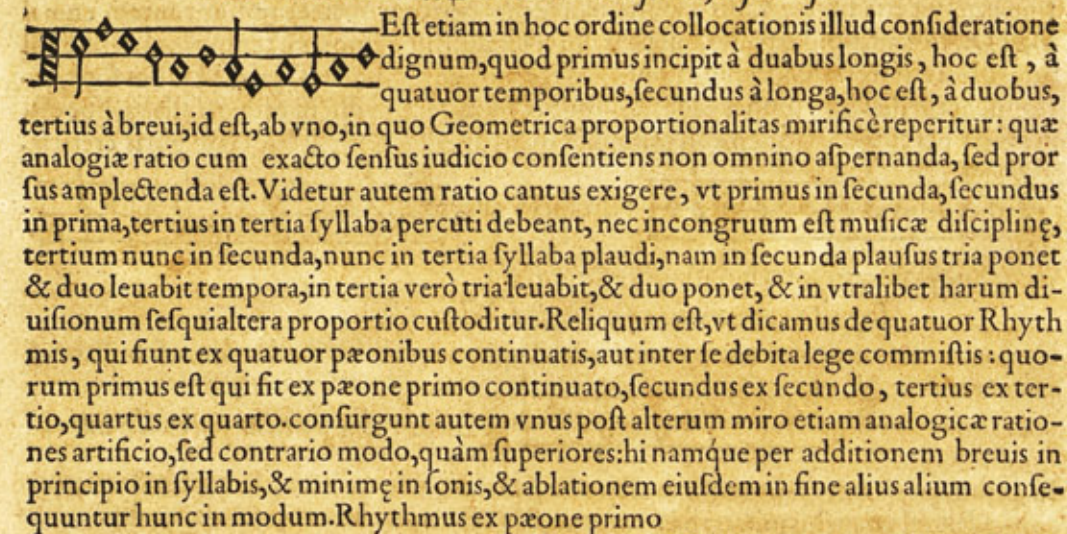 Eſt etiam in hoc ordine collocationis illud conſideratione
dignum,quod primus incipit à duabus longis, hoc eſt, à
quatuor temporibus,ſecundus à longa,hoc eſt, à duobus,
tertius à breui,id eſt,ab vno,in quo Geometrica proportionalitas mirificè reperitur: quæ
analogiæ ratio cum exacto ſenſus iudicio conſentiens non omnino aſpernanda, ſed pror
ſus amplectenda eſt.Videtur autem ratio cantus exigere, vt primus in ſecunda,ſecundus
in prima,tertius in tertia ſyllaba percuti debeant, nec incongruum eſt muſicæ diſciplinę,
tertium nunc in ſecunda,nunc in tertia ſyllaba plaudi,nam in ſecunda plauſus tria ponet
& duo leuabit tempora,in tertia verò tria leuabit,& duo ponet, & in vtralibet harum di-
uiſionum ſeſquialtera proportio cuſtoditur.Reliquum eſt,vt dicamus de quatuor Rhyth
mis, qui fiunt ex quatuor pæonibus continuatis,aut inter ſe debita lege commiſtis: quo-
rum primus eſt qui fit ex pæone primo continuato,ſecundus ex ſecundo, tertius ex ter-
tio,quartus ex quarto.conſurgunt autem vnus poſt alterum miro etiam analogicæ ratio-
nes artificio,ſed contrario modo,quàm ſuperiores:hi namque per additionem breuis in
principio in ſyllabis,& minimę in ſonis,& ablationem eiuſdem in fine alius alium conſe-
quuntur hunc in modum.Rhythmus ex pæone primo